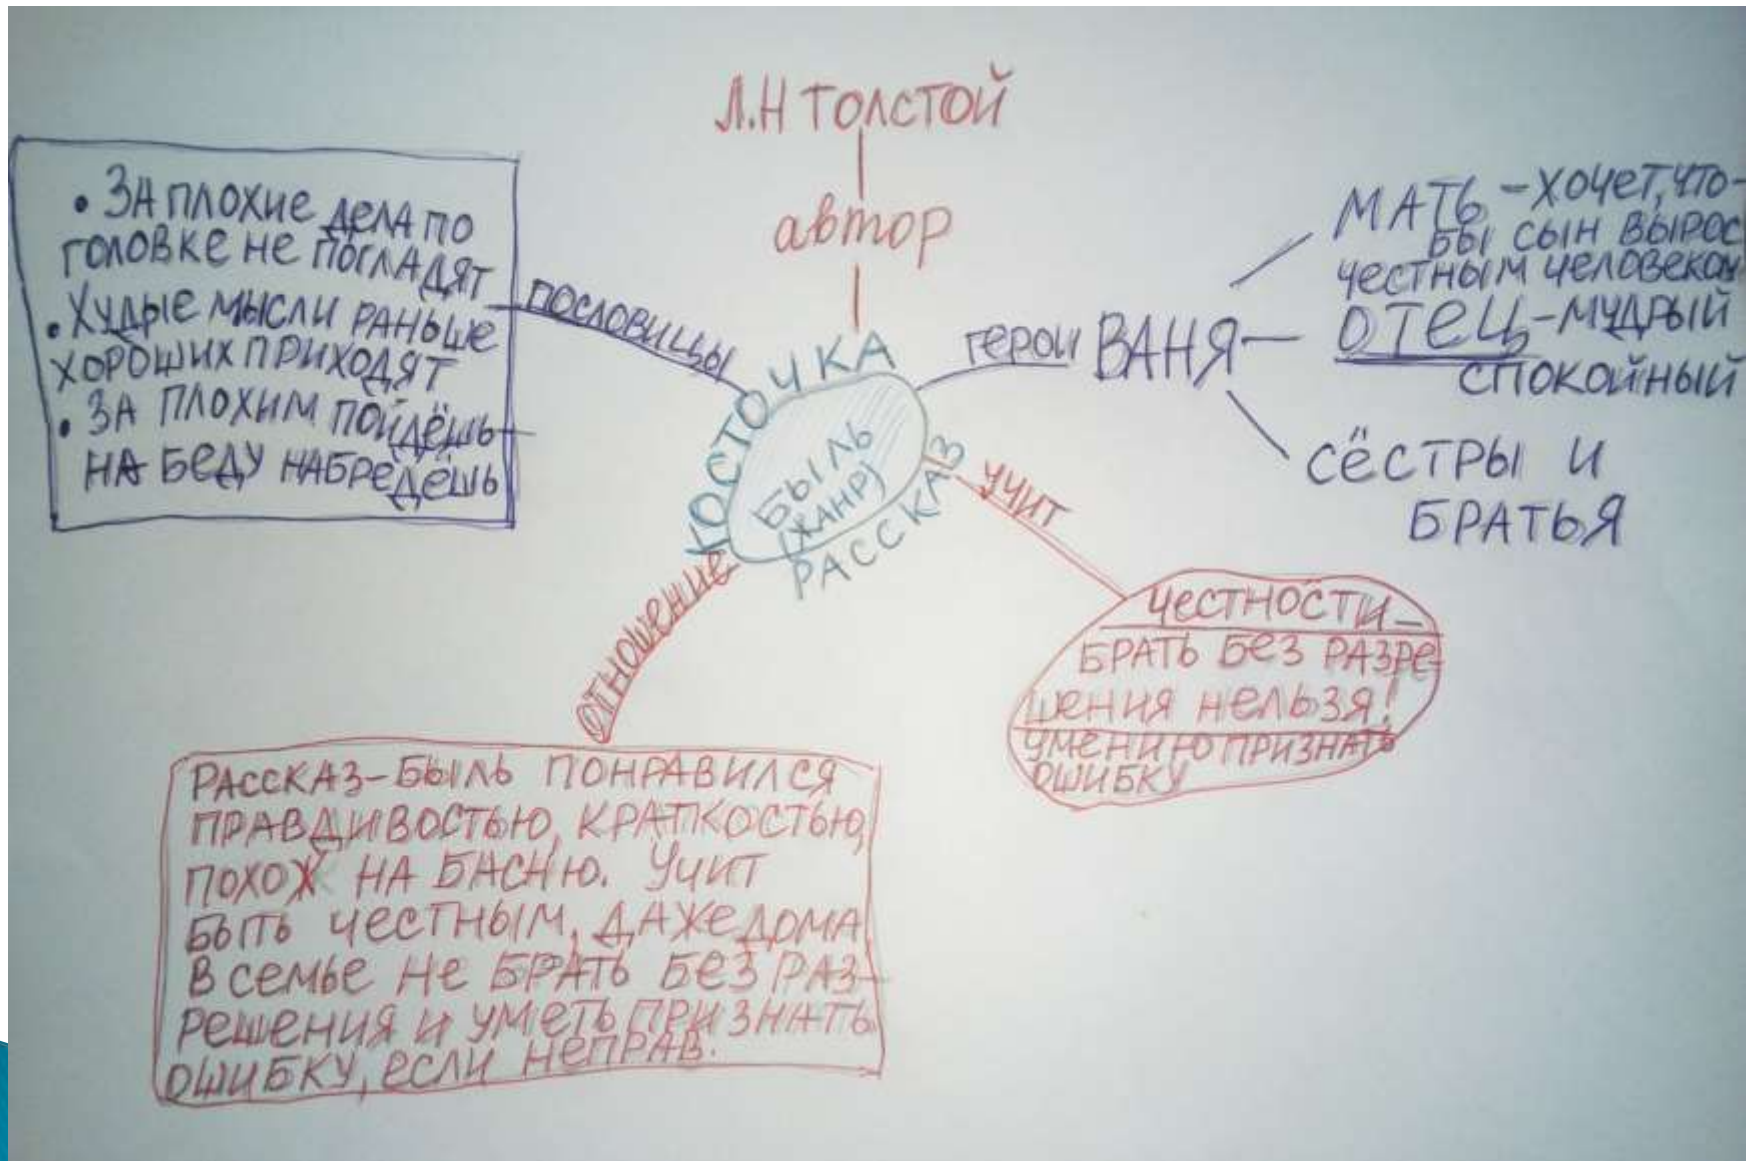 Л.Н ТОЛСТОЙ
автор
КОСТОЧКА
БЫЛЬ
(ЖАНР)
РАССКАЗ
ПОСЛОВИЦЫ
• ЗА ПЛОХИЕ ДЕЛА ПО
ГОЛОВКЕ НЕ ПОГЛАДЯТ
• ХУДЫЕ МЫСЛИ РАНЬШЕ
ХОРОШИХ ПРИХОДЯТ
• ЗА ПЛОХИМ ПОЙДЁШЬ-
НА БЕДУ НАБРЕДЁШЬ
ГЕРОИ
ВАНЯ
МАТЬ - ХОЧЕТ, ЧТО-
БЫ СЫН ВЫРОС
ЧЕСТНЫМ ЧЕЛОВЕКОМ
ОТЕЦ - МУДРЫЙ
СПОКОЙНЫЙ
СЁСТРЫ И
БРАТЬЯ
УЧИТ
ЧЕСТНОСТИ -
БРАТЬ БЕЗ РАЗРЕ-
ШЕНИЯ НЕЛЬЗЯ!
УМЕНИЮ ПРИЗНАТЬ
ОШИБКУ
ОТНОШЕНИЕ
РАССКАЗ-БЫЛЬ ПОНРАВИЛСЯ
ПРАВДИВОСТЬЮ, КРАТКОСТЬЮ,
ПОХОЖ НА БАСНЮ. УЧИТ
БЫТЬ ЧЕСТНЫМ, ДАЖЕ ДОМА
В СЕМЬЕ НЕ БРАТЬ БЕЗ РАЗ-
РЕШЕНИЯ И УМЕТЬ ПРИЗНАТЬ
ОШИБКУ, ЕСЛИ НЕПРАВ.